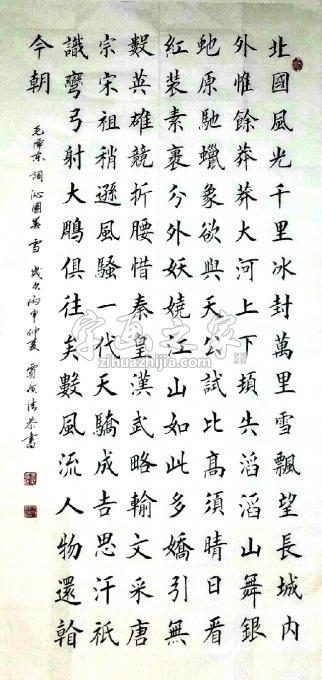 北國風光千里冰封萬里雪飄望長城内
外惟餘莽莽大河上下頓失滔滔山舞銀
虵原馳蠟象欲與天公試比高須晴日看
紅装素裹分外妖嬈江山如此多嬌引無
數英雄競折腰惜秦皇漢武略輸文采唐
宗宋祖稍遜風騷一代天驕成吉思汗祇
識彎弓射大鵰俱往矣數風流人物還
今朝
毛澤東詞沁園春雪歲次丙申仲夏賈恭書
字画之家
zihuazhijia.com